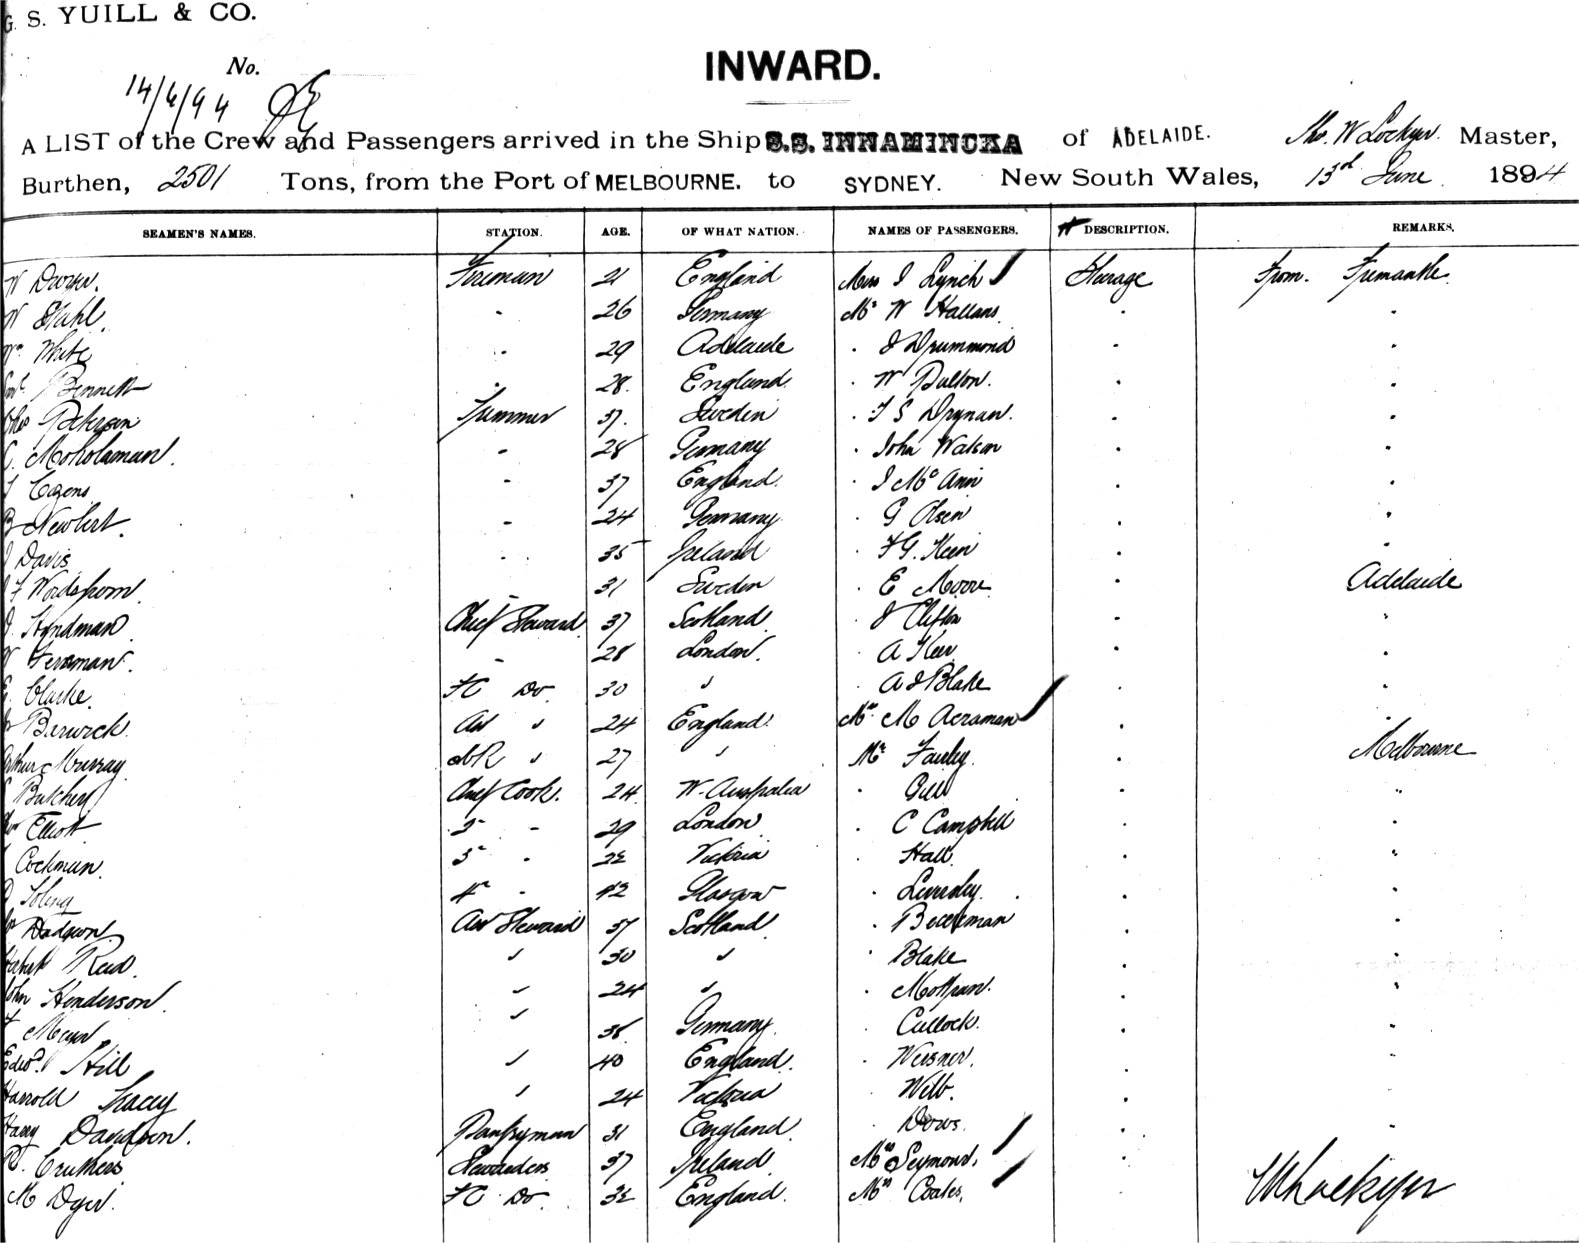 G. S. YUILL & CO.
INWARD.
No.
14/6/94
A LIST of the Crew and Passengers arrived in the Ship S.S. INNAMINCKA of ADELAIDE. Tho. W Lockyer. Master,
Burthen, 2501 Tons, from the Port of MELBOURNE. to SYDNEY. New South Wales, 13th June 1894
SEAMEN'S NAMES. STATION. AGE. OF WHAT NATION. NAMES OF PASSENGERS. DESCRIPTION. REMARKS.
W Dwyer. Fireman 21 England Miss I Lynch Steerage From. Fremantle
W Stahl. 26 Germany Mr W Hallans
Wm White 29 Adelaide J Drummond
Bennett 28. England W Dalton.
Chas Petersen Trimmer 37. Sweden T S Drynan.
28 Germany John Watson
Cozens 37 England J McAnn
Newbert. 24 Germany G Olsen
J Davis 35 Ireland F G. Keen
31 Sweden E Moore Adelaide
Hyndman Chief Steward 37 Scotland J Clifton
28 London. A Keer
E. Clarke. FC Do 30 " A J Blake
Berwick. 24 England. Mrs M Acraman
Arthur Murray 27 " Mr Fairley. Melbourne
Butcher Chief Cook. 24 W. Australia Gill
Elliott - 29 London C Campbell
Cockman. 3rd Victoria Hall
4th 42 Glasgow Leversley.
Dodgson Steward 37 Scotland
Reid. " 30 " Blake
John Henderson. " 24 "
" Germany. Cullock.
Edwd. Hill " 40 England. Weisner.
Harrold Stacey " 24 Victoria Webb.
Harry Davidson. Pantryman 31 England Dows.
Cruthers Stewardess 37 Ireland Mrs Seymour.
M Dyer. FC Do. England. Mrs Coates.